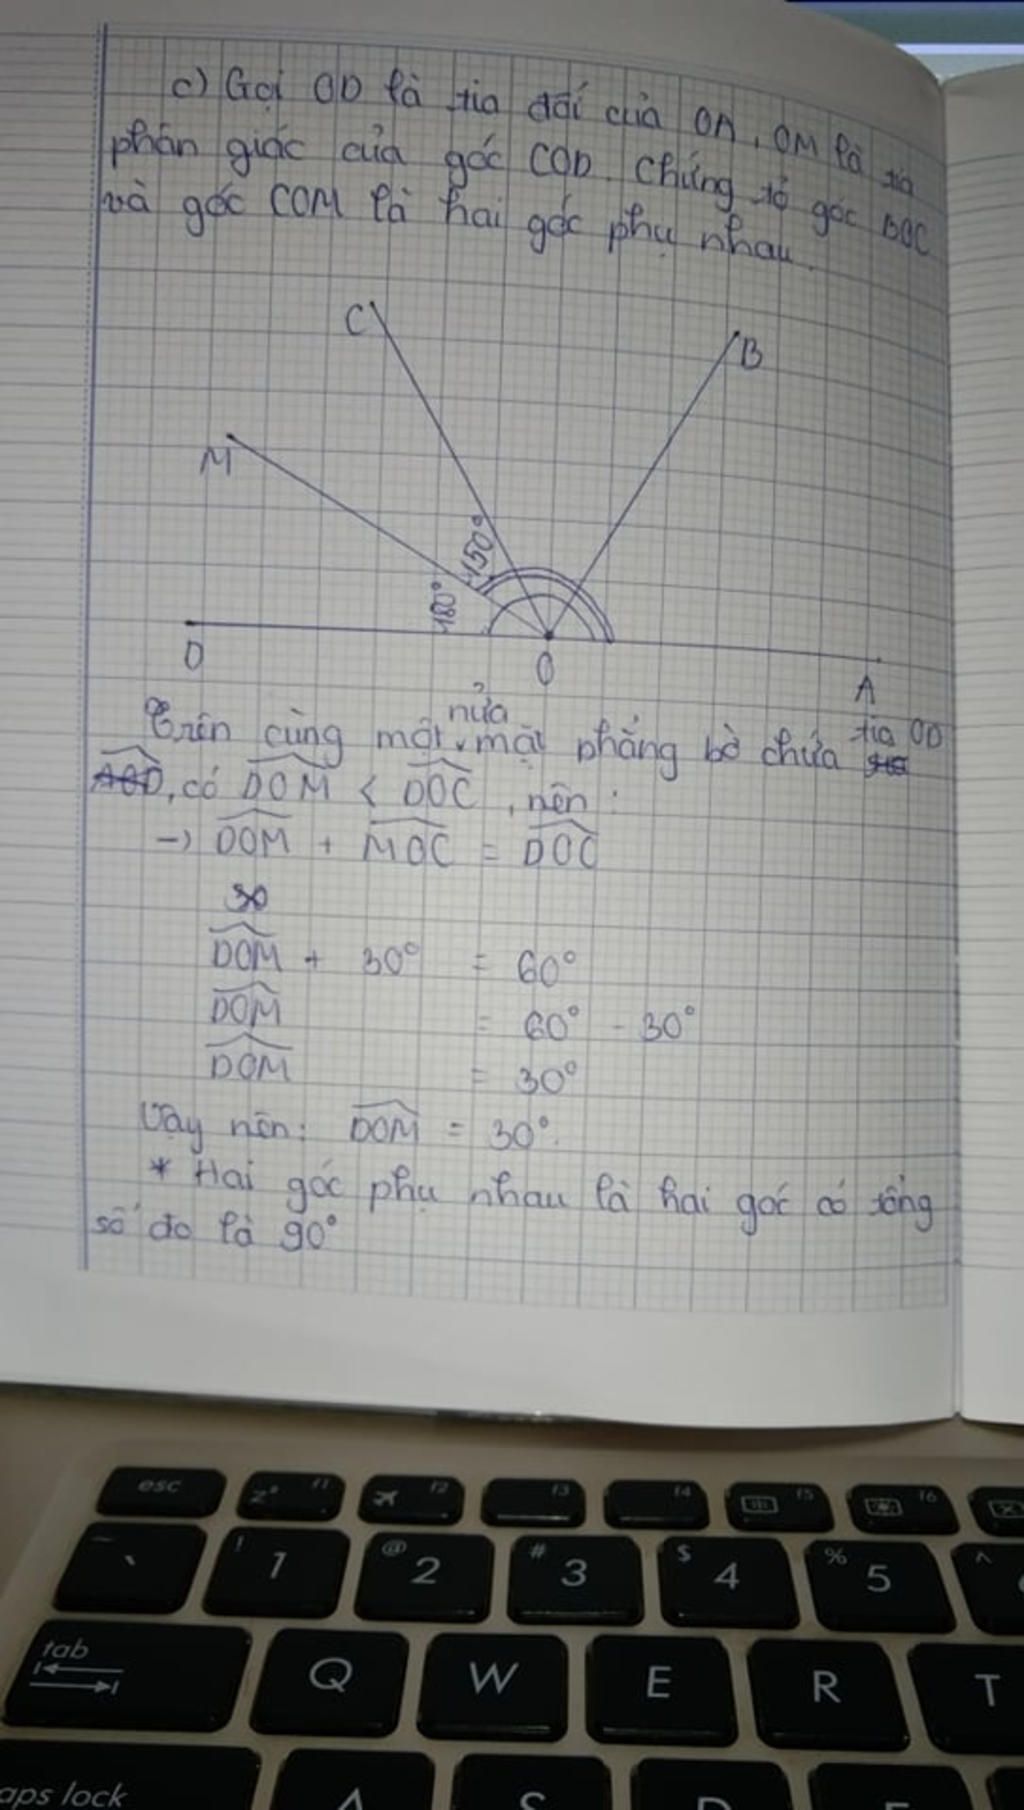 c) Gọi OD là tia đối của OA, OM là tia
phân giác của góc COD. Chứng tỏ góc BOC
và góc COM là hai góc phụ nhau.
C
B
M
150°
180°
D
O
A
nửa
Trên cùng một mặt phẳng bờ chứa tia OD
AOD, có DOM < DOC, nên:
→ DOM + MOC = DOC
30
DOM + 30° = 60°
DOM = 60° - 30°
DOM = 30°
Vậy nên: DOM = 30°.
* Hai góc phụ nhau là hai góc có tổng
số đo là 90°
esc
z² f1
f2
f3
f4
f5
f6
~ `
! 1
@ 2
# 3
$ 4
% 5
^
tab
Q
W
E
R
T
aps lock
A
S
D
F